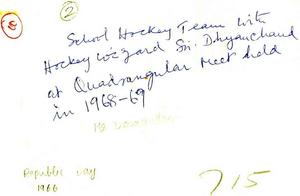 2
School Hockey Team with
Hockey Wizard Sri. Dhyanchand
at Quadrangular Meet held
in 1968-69
Republic Day
1966
715